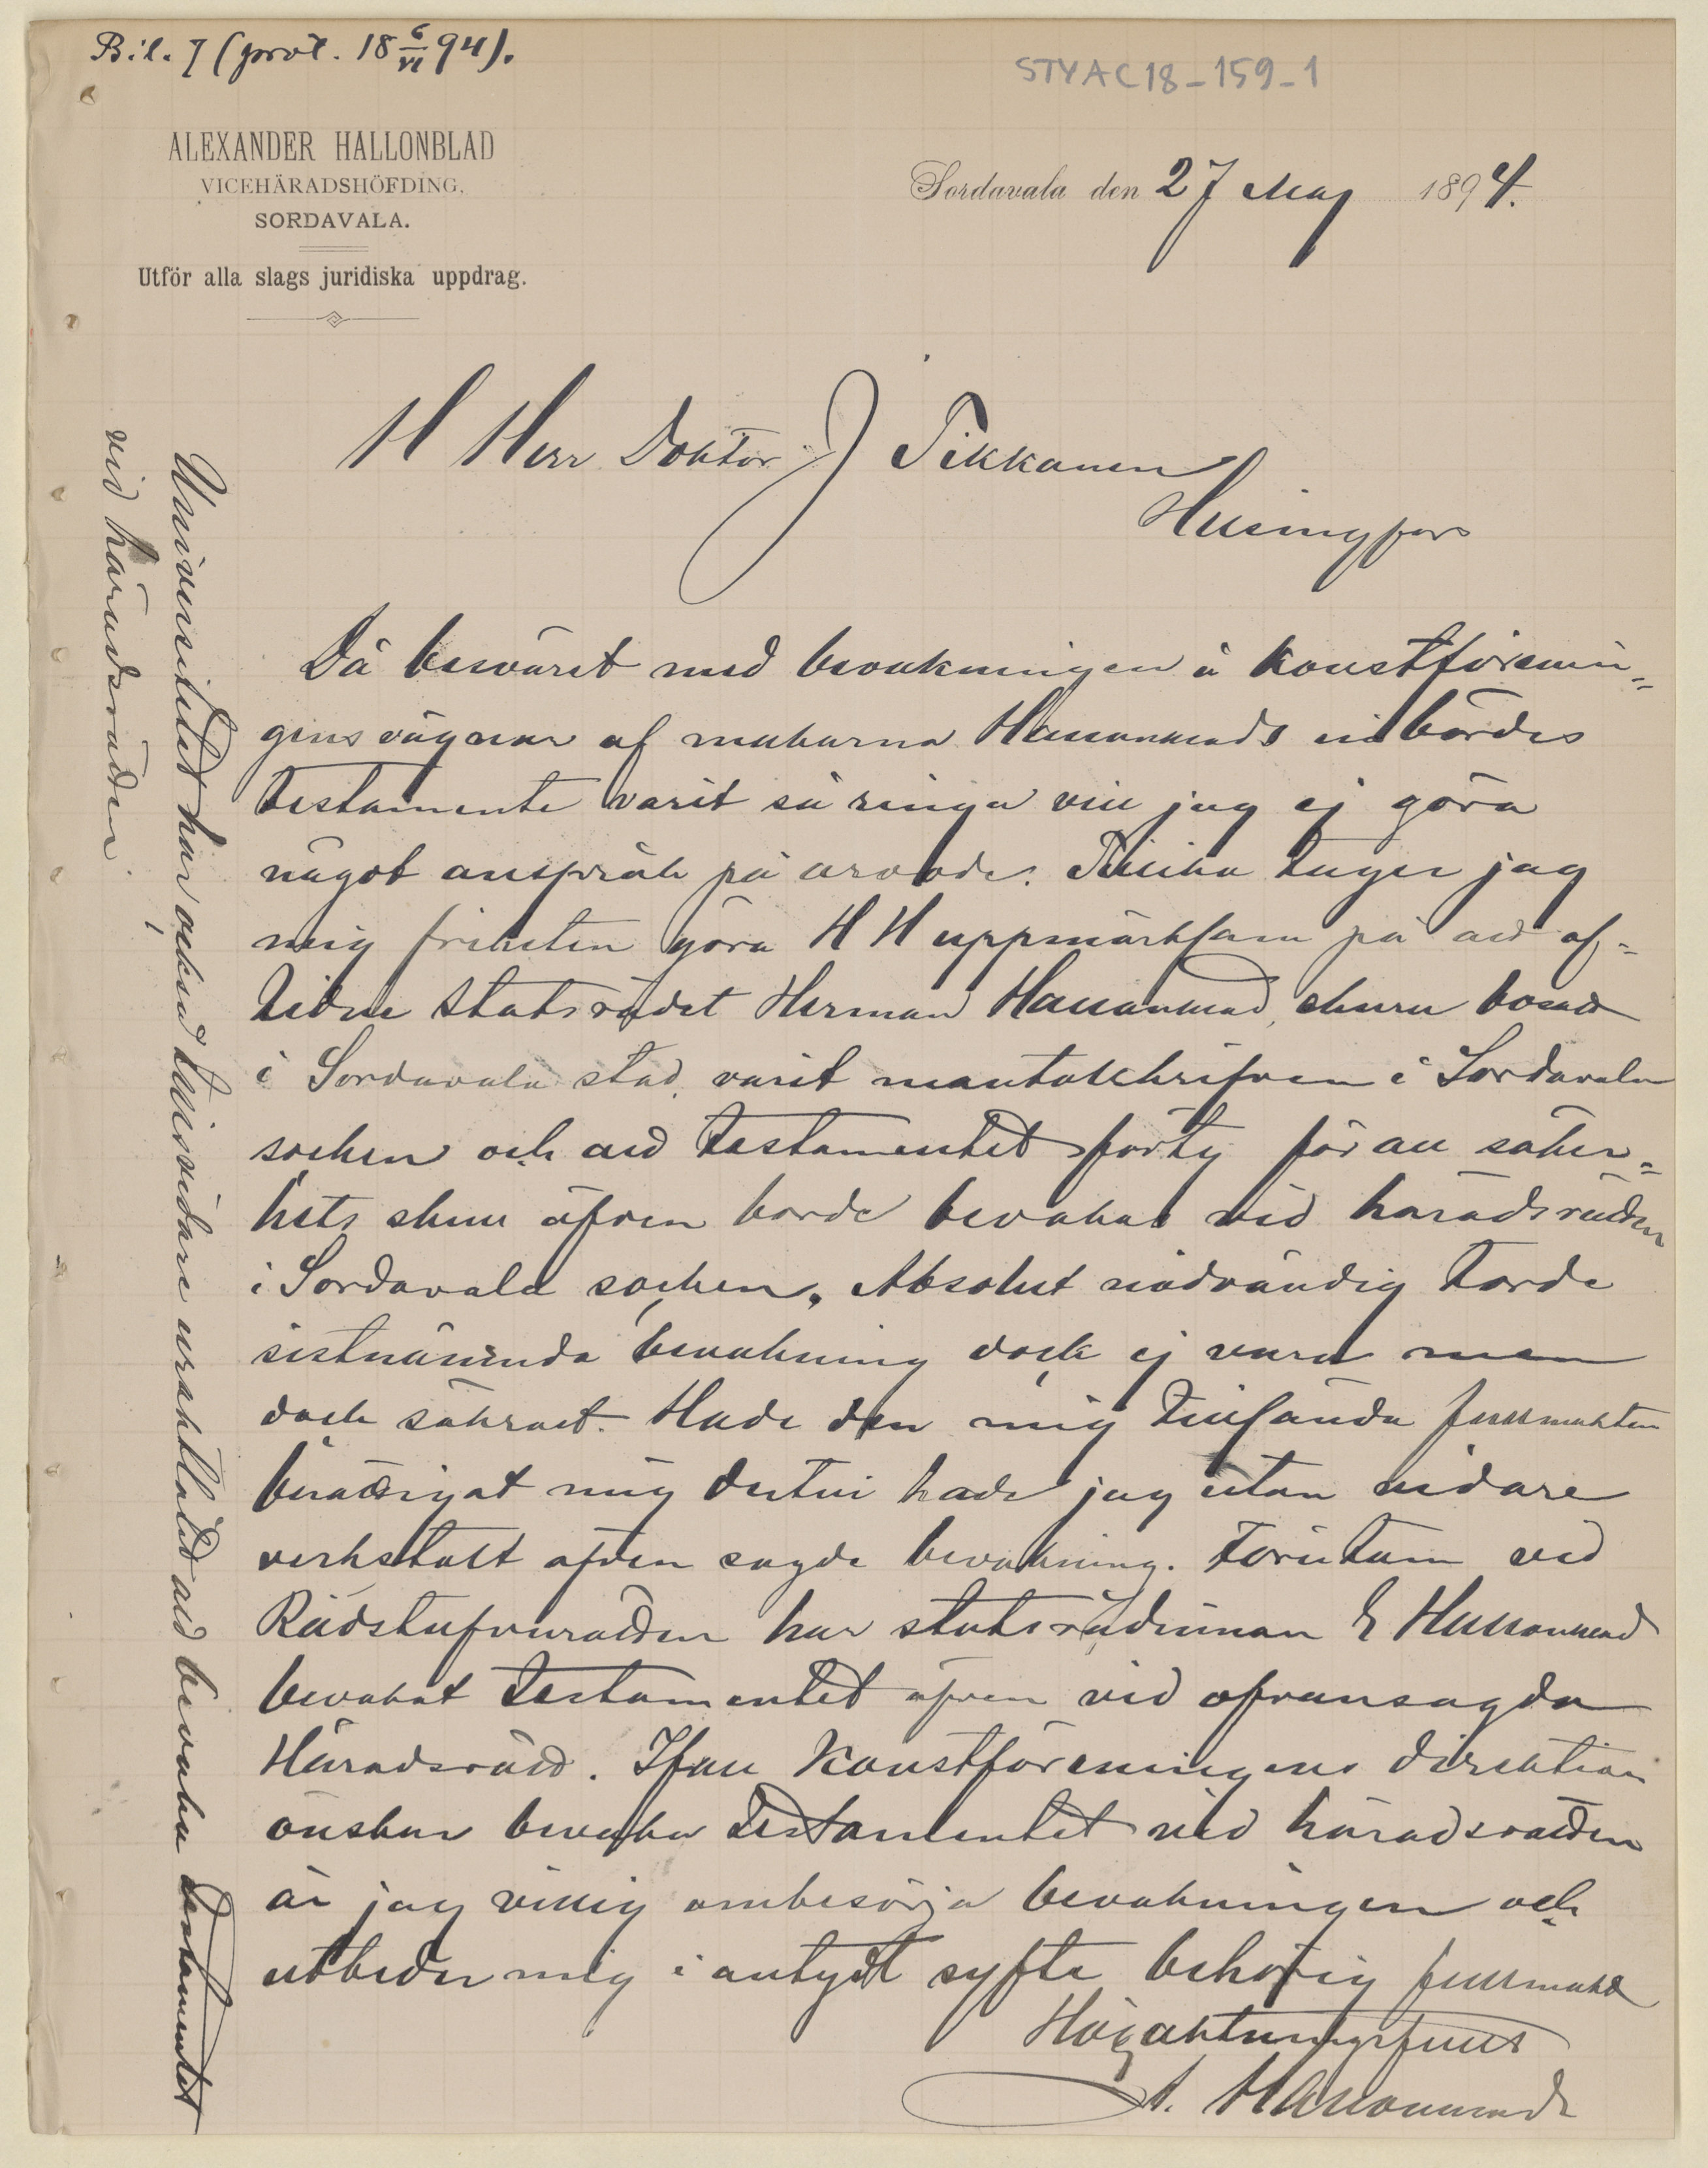 Bil. I (prot. 18 6/VI 94).
STYAC18-159-1
ALEXANDER HALLONBLAD
VICEHÄRADSHÖFDING,
SORDAVALA.
Utför alla slags juridiska uppdrag.
Sordavala den 27 Maj 1894.
H Herr Doktor J Tikkanen
Helsingfors
Då besväret med bevakningen å Konstförenin-
gens vägnar af makarna Hallonblads inbördes
testamente varit så ringa vill jag ej göra
något anspråk på arvode. Tillika tager jag
mig friheten göra H H uppmärksam på att af-
lidne statsrådet Herman Hallonblad, ehuru bosatt
i Sordavala stad, varit mantalskrifven i Sordavala
socken och att testamentet förty för all säker-
hets skull äfven borde bevakas vid häradsrätten
i Sordavala socken. Absolut nödvändig torde
sistnämnda bevakning dock ej vara men
dock säkrast. Hade den mig tillsända fullmakten
berättigat mig dertill hade jag utan vidare
verkstält äfven sagde bevakning. Förutom vid
Rådstufvurätten har statsrådinnan E Hallonblad
bevakat testamentet äfven vid ofvansagda
Häradsrätt. Ifall Konstföreningens direktion
önskar bevaka testamentet vid häradsrätten
är jag villig ombesörja bevakningen och
utbeder mig i antydt syfte behörig fullmakt
Högaktningsfullt
A. Hallonblad
Universitetet har också tillsvidare uraktlåtit att bevaka testamentet
vid häradsrätten.